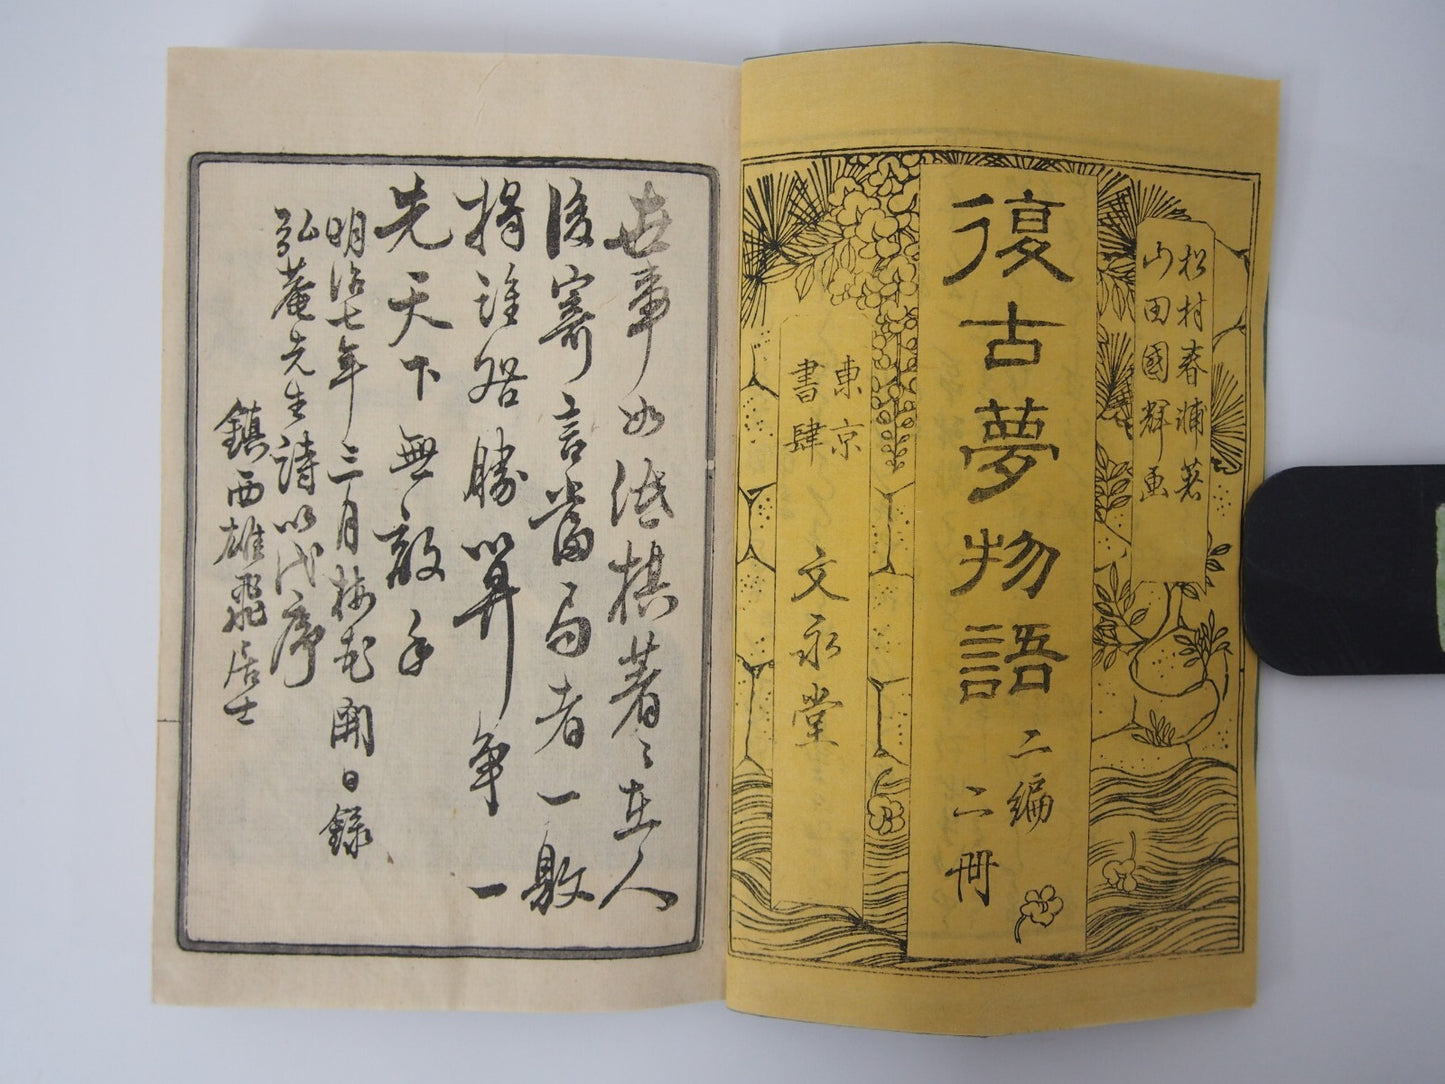 松村春輔著
山田國輝画
復古夢物語 二編 二冊
東京
書肆
文永堂
世事如低棋著〻在人
後寄言當局者一敗
将誰咎勝算争一
先天下無敵手
明治七年三月梅花開日録
弘菴先生詩以代序
鎮西雄飛居士